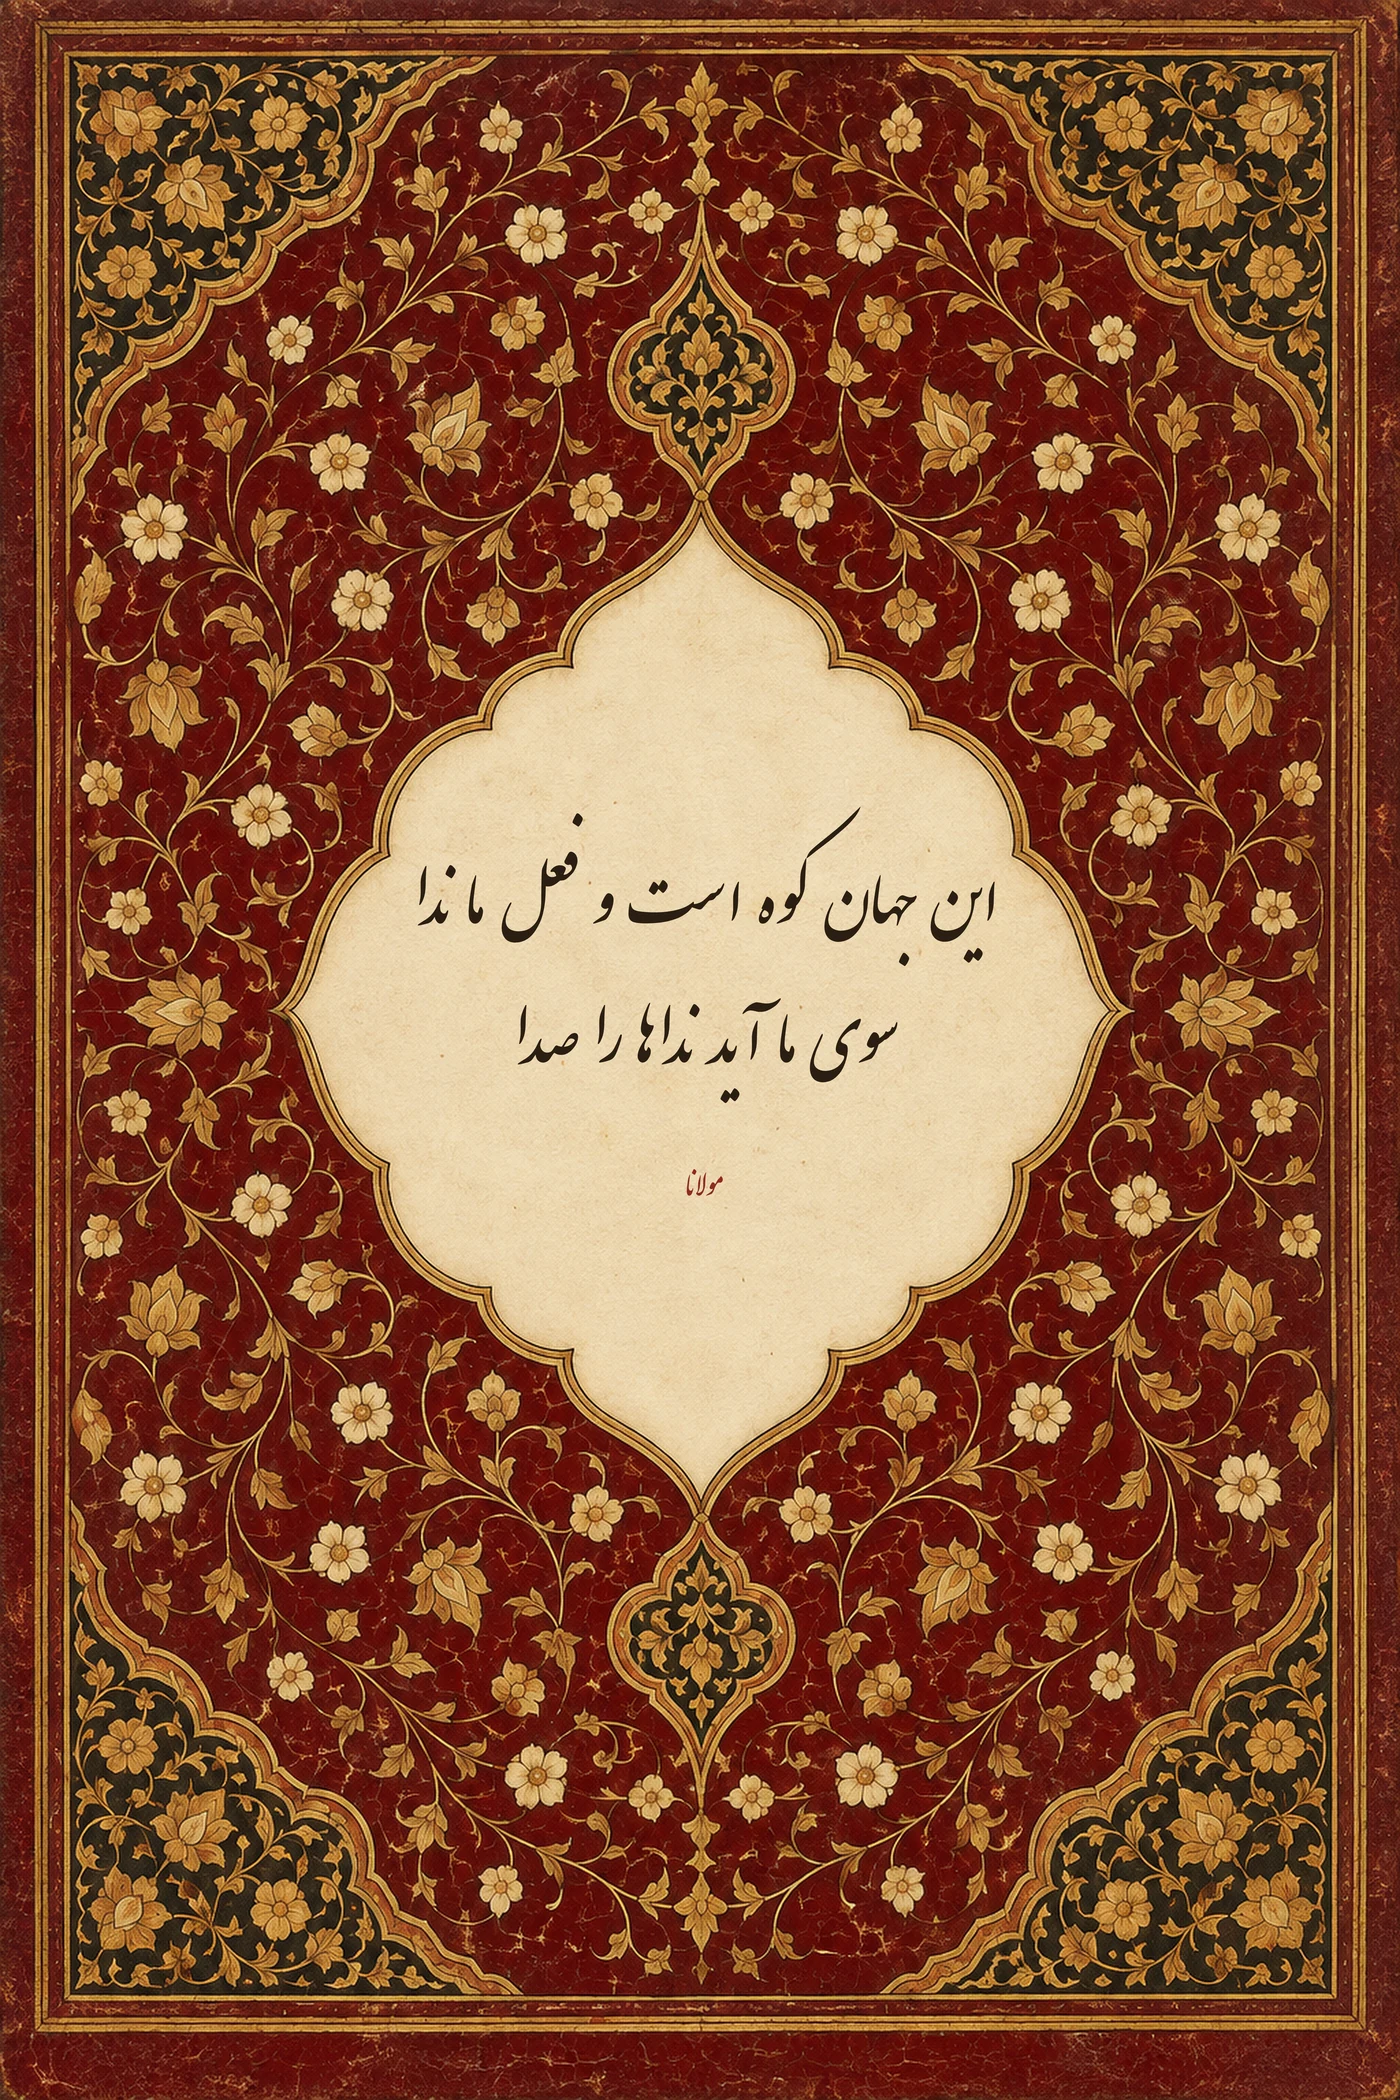 این جهان کوه است و فعل ما ندا
سوی ما آید نداها را صدا
مولانا